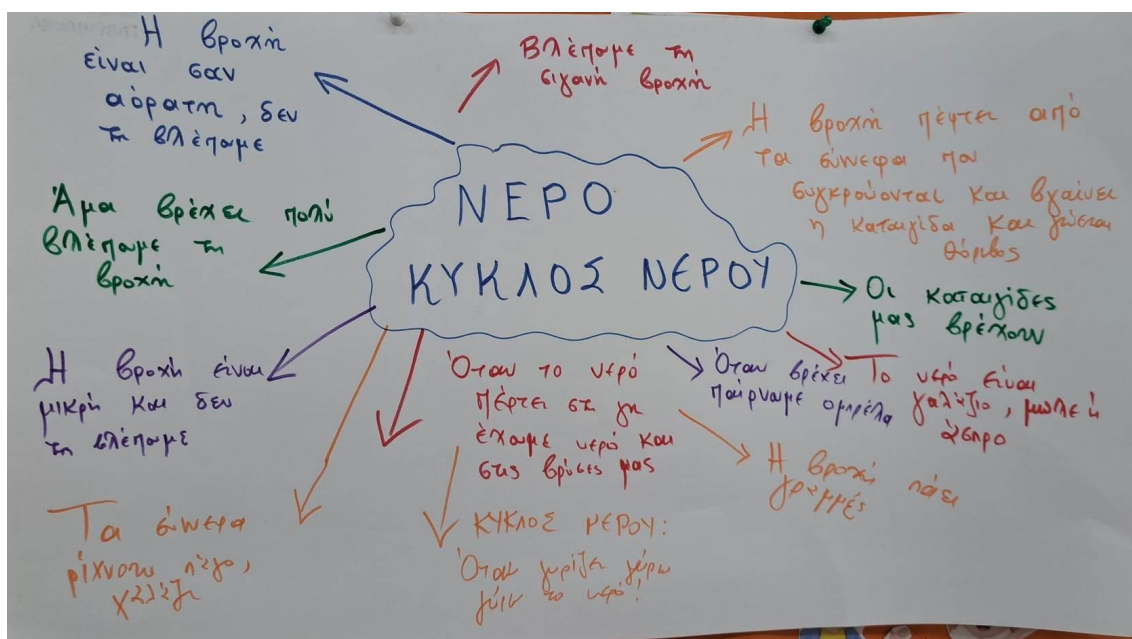 Η βροχή
είναι σαν
αόρατη, δεν
τη βλέπαμε
Βλέπαμε τη
σιγανή βροχή
Η βροχή πέφτει από
τα σύννεφα που
συγκρούονται και βγαίνει
η καταιγίδα και γίνεται
θόρυβος
ΝΕΡΟ
ΚΥΚΛΟΣ ΝΕΡΟΥ
Άμα βρέχει πολύ
βλέπουμε τη
βροχή
Οι καταιγίδες
μας βρέχουν
Η βροχή είναι
μικρή και δεν
τη βλέπουμε
Όταν το νερό
πέφτει στη γη
έχουμε νερό και
στις βρύσες μας
Όταν βρέχει
παίρνουμε ομπρέλα
Το νερό είναι
γαλάζιο, μπλε ή
άσπρο
Η βροχή πάει
γραμμές
Τα σύννεφα
ρίχνουν πάγο,
χαλάζι
ΚΥΚΛΟΣ ΝΕΡΟΥ:
Όταν γυρίζει γύρω
γύρω το νερό!